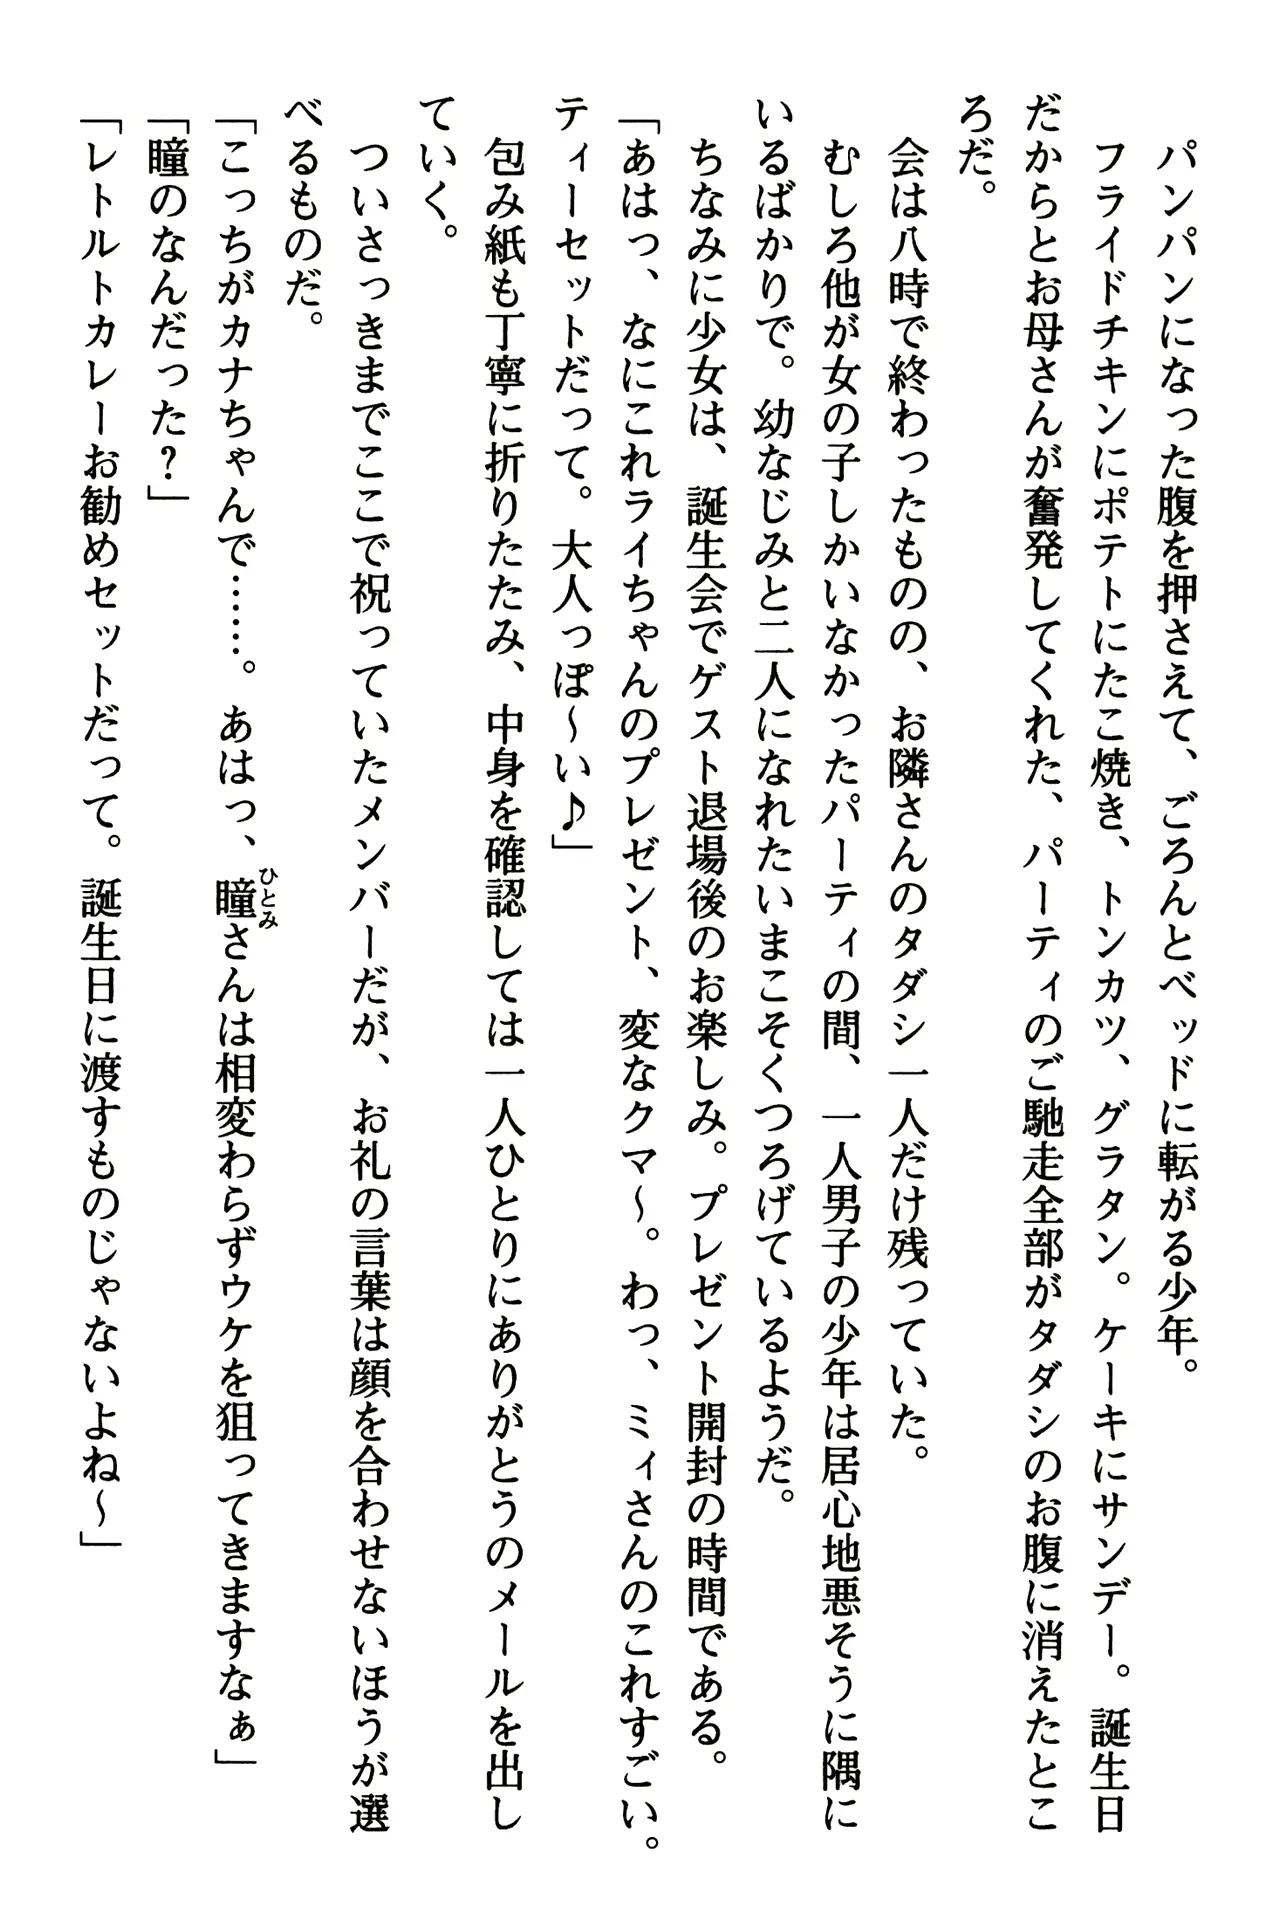 パンパンになった腹を押さえて、ごろんとベッドに転がる少年。
フライドチキンにポテトにたこ焼き、トンカツ、グラタン。ケーキにサンデー。誕生日
だからとお母さんが奮発してくれた、パーティのご馳走全部がタダシのお腹に消えたとこ
ろだ。
会は八時で終わったものの、お隣さんのタダシ一人だけ残っていた。
むしろ他が女の子しかいなかったパーティの間、一人男子の少年は居心地悪そうに隅に
いるばかりで。幼なじみと二人になれたいまこそくつろげているようだ。
ちなみに少女は、誕生会でゲスト退場後のお楽しみ。プレゼント開封の時間である。
「あはっ、なにこれライちゃんのプレゼント、変なクマ〜。わっ、ミィさんのこれすごい。
ティーセットだって。大人っぽ〜い♪」
包み紙も丁寧に折りたたみ、中身を確認しては一人ひとりにありがとうのメールを出し
ていく。
ついさっきまでここで祝っていたメンバーだが、お礼の言葉は顔を合わせないほうが選
べるものだ。
「こっちがカナちゃんで……。あはっ、瞳さんは相変わらずウケを狙ってきますなぁ」
ひとみ
「瞳のなんだった?」
「レトルトカレーお勧めセットだって。誕生日に渡すものじゃないよね〜」